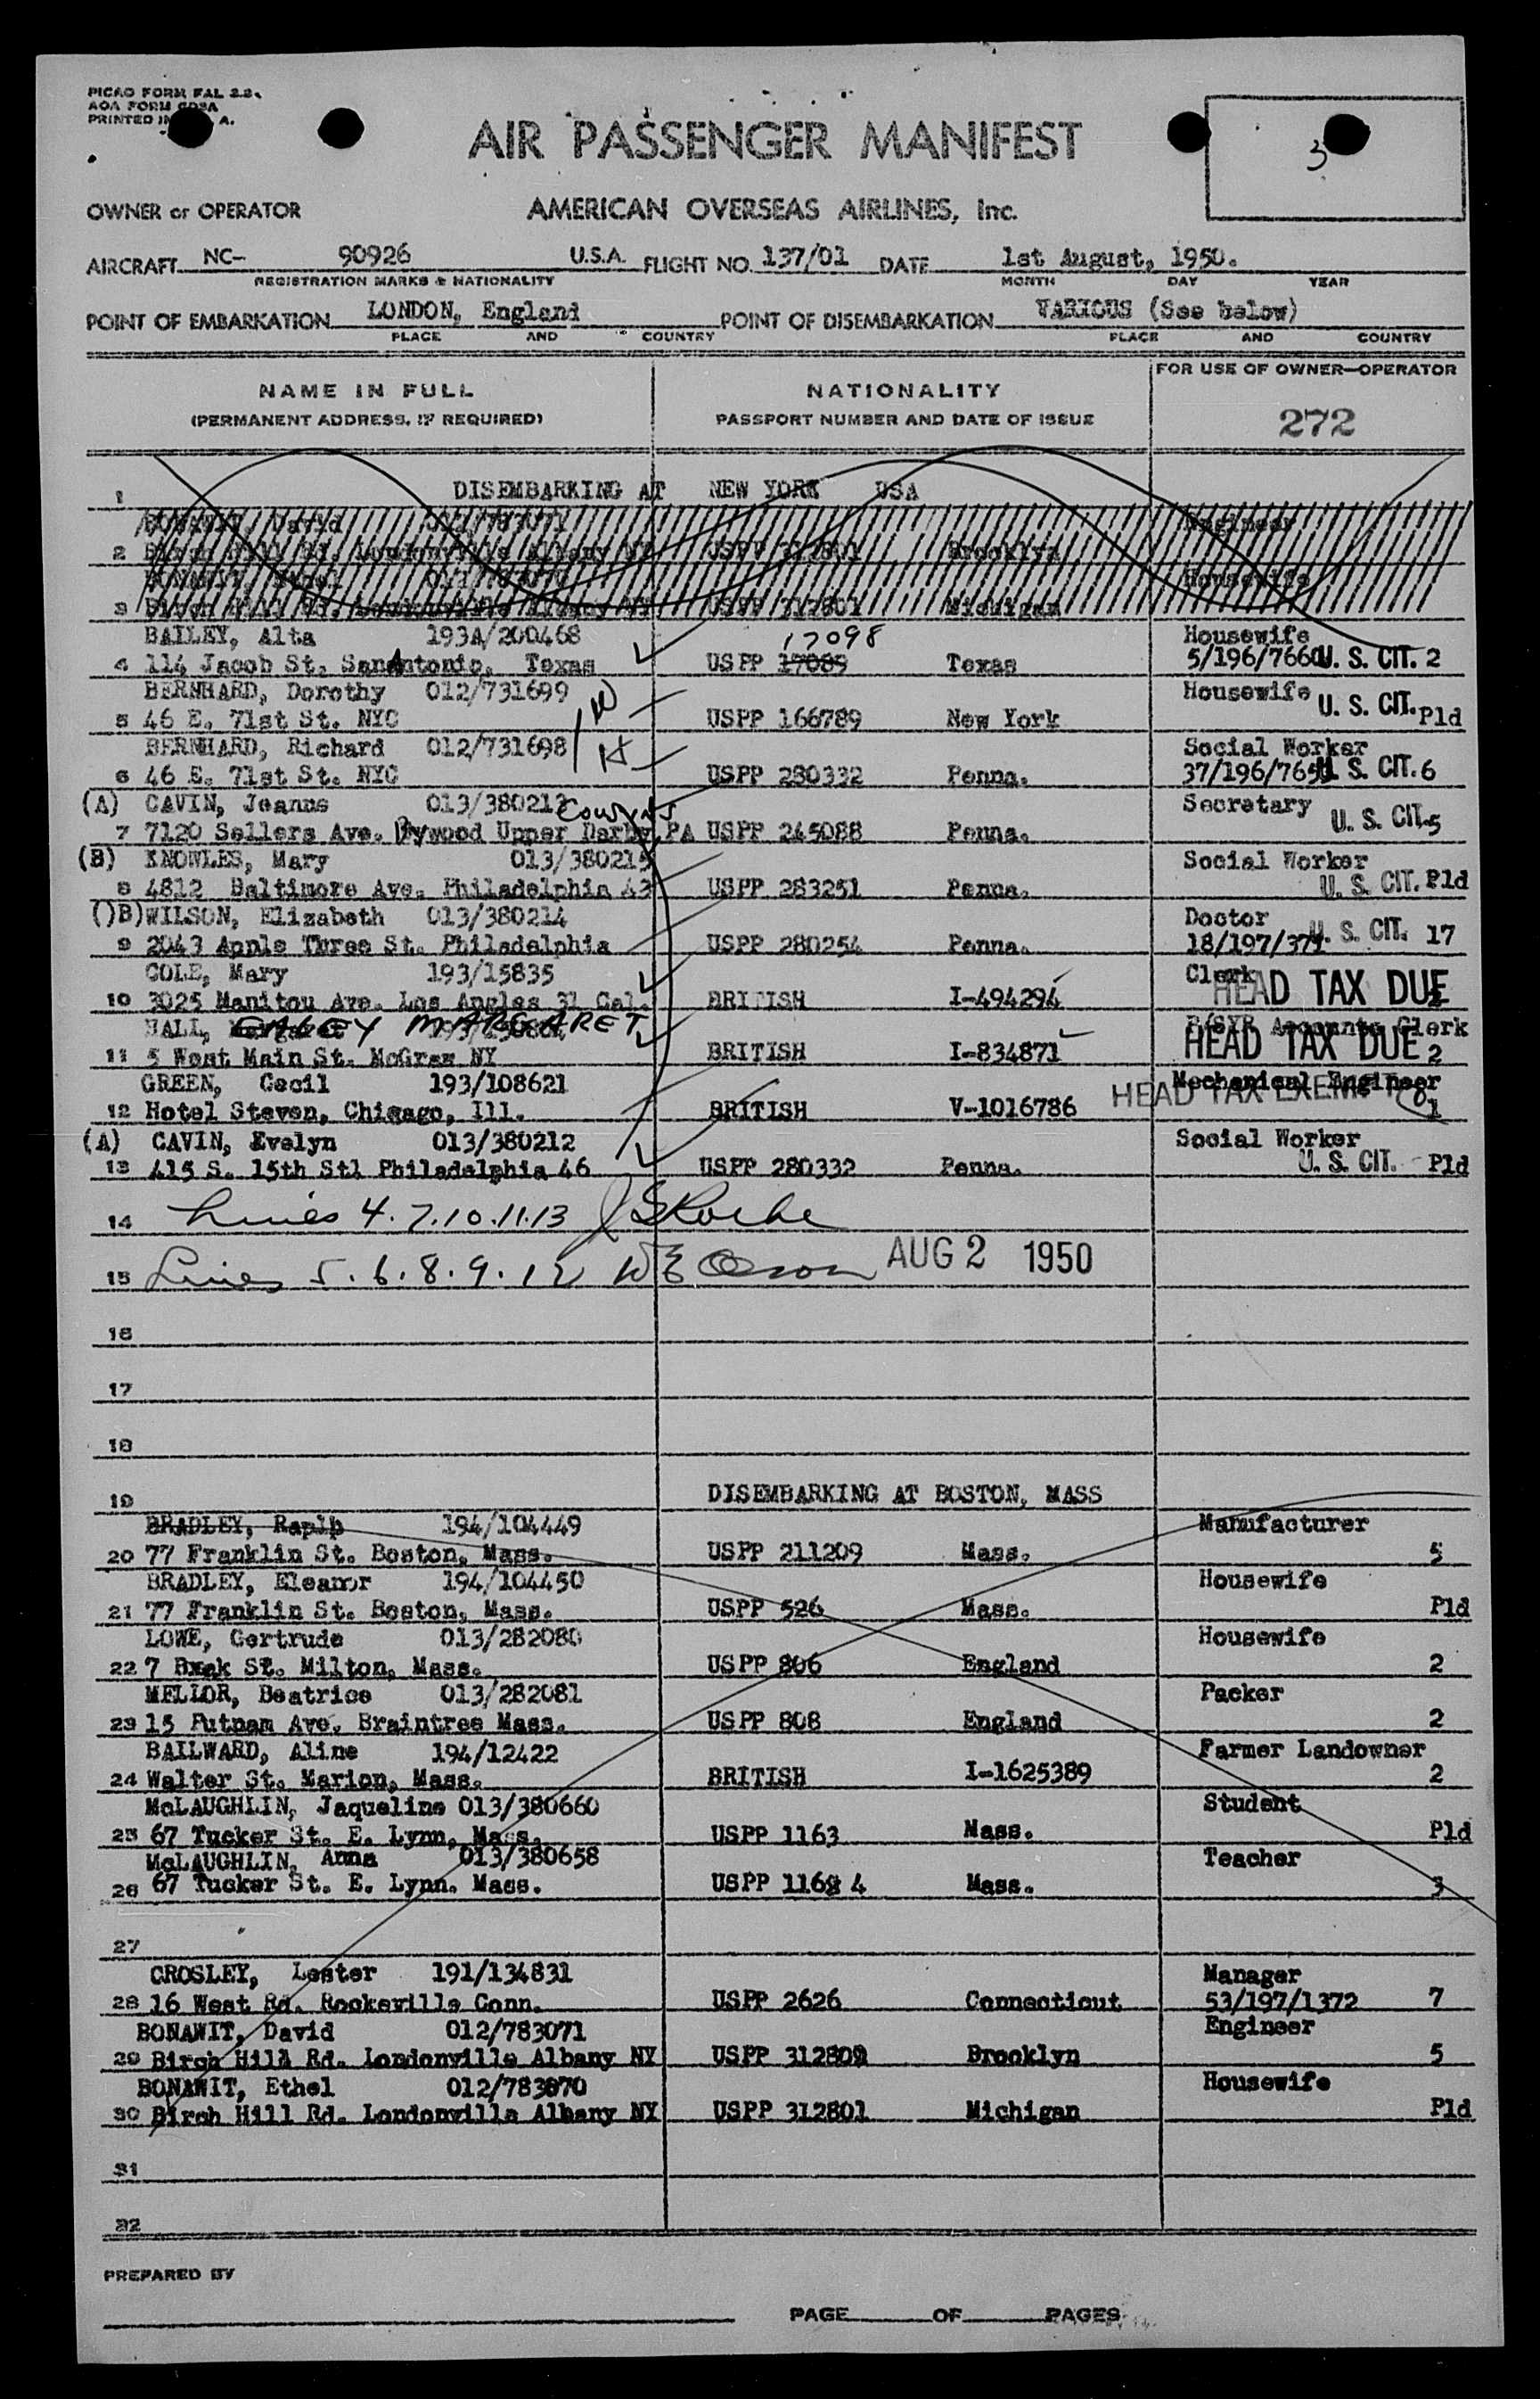 PICAO FORM FAL 2.2.
AOA FORM
PRINTED IN A.
AIR PASSENGER MANIFEST
3
OWNER or OPERATOR AMERICAN OVERSEAS AIRLINES, Inc.
AIRCRAFT NC- 90926 U.S.A. FLIGHT NO. 137/01 DATE 1st August, 1950.
REGISTRATION MARKS & NATIONALITY MONTH DAY YEAR
POINT OF EMBARKATION LONDON, England POINT OF DISEMBARKATION VARIOUS (See below)
PLACE AND COUNTRY PLACE AND COUNTRY
FOR USE OF OWNER—OPERATOR
NAME IN FULL NATIONALITY
(PERMANENT ADDRESS, IF REQUIRED) PASSPORT NUMBER AND DATE OF ISSUE 272
1 DISEMBARKING AT NEW YORK USA
BONAWIT, David 012/783071 Engineer
2 Birch Hill Rd. Loudonville Albany NY USPP 312801 Brooklyn
BONAWIT, Ethel Housewife
3 Birch Hill Rd. Loudonville Albany NY USPP 312801 Michigan
BAILEY, Alta 193A/200468 17098 Housewife
4 114 Jacob St. SanAntonio, Texas USPP 17089 Texas 5/196/7660 U. S. CIT. 2
BERNHARD, Dorothy 012/731699 W Housewife
5 46 E. 71st St. NYC USPP 166789 New York U. S. CIT. Pld
BERNHARD, Richard 012/731698 H Social Worker
6 46 E. 71st St. NYC USPP 280332 Penna. 37/196/765 U. S. CIT. 6
(A) CAVIN, Jeanne 013/380213 COUSINS Secretary
7 7120 Sellers Ave. Bywood Upper Darby PA USPP 245088 Penna. U. S. CIT. 5
(B) KNOWLES, Mary 013/380215 Social Worker
8 4812 Baltimore Ave. Philadelphia 43 USPP 283251 Penna. U. S. CIT. Pld
()B) WILSON, Elizabeth 013/380214 Doctor
9 2043 Apple Three St. Philadelphia USPP 280254 Penna. 18/197/371 U. S. CIT. 17
COLE, Mary 193/15835 Clerk
10 3025 Manitou Ave. Los Angles 31 Cal. BRITISH I-494294 HEAD TAX DUE 2
HALL, EMLEY MARGARET Accounts Clerk
11 5 West Main St. McGraw NY BRITISH I-834871 HEAD TAX DUE 2
GREEN, Cecil 193/108621 Mechanical Engineer
12 Hotel Steven, Chicago, Ill. BRITISH V-1016786 HEAD TAX EXEMPT 1
(A) CAVIN, Evelyn 013/380212 Social Worker
13 415 S. 15th Stl Philadelphia 46 USPP 280332 Penna. U. S. CIT. Pld
14 Lines 4.7.10.11.13 JSRoche
15 Lines 5.6.8.9.12 WE Olson AUG 2 1950
16
17
18
19 DISEMBARKING AT BOSTON, MASS
BRADLEY, Raplh 194/104449 Manufacturer
20 77 Franklin St. Boston, Mass. USPP 211209 Mass. 5
BRADLEY, Eleanor 194/104450 Housewife
21 77 Franklin St. Boston, Mass. USPP 526 Mass. Pld
LOWE, Gertrude 013/282080 Housewife
22 7 St. Milton, Mass. USPP 806 England 2
MELLOR, Beatrice 013/282081 Packer
23 15 Putnam Ave. Braintree Mass. USPP 808 England 2
BAILWARD, Aline 194/12422 Farmer Landowner
24 Walter St. Marion, Mass. BRITISH I-1625389 2
McLAUGHLIN, Jaqueline 013/380660 Student
25 67 Tucker St. E. Lynn, Mass. USPP 1163 Mass. Pld
McLAUGHLIN, Anna 013/380658 Teacher
26 67 Tucker St. E. Lynn. Mass. USPP 1168 4 Mass. 3
27
CROSLEY, Lester 191/134831 Manager
28 16 West Rd. Rockeville Conn. USPP 2626 Connecticut 53/197/1372 7
BONAWIT, David 012/783071 Engineer
29 Birch Hill Rd. Londonville Albany NY USPP 312809 Brooklyn 5
BONAWIT, Ethel 012/783070 Housewife
30 Birch Hill Rd. Londonville Albany NY USPP 312801 Michigan Pld
31
32
PREPARED BY
PAGE OF PAGES